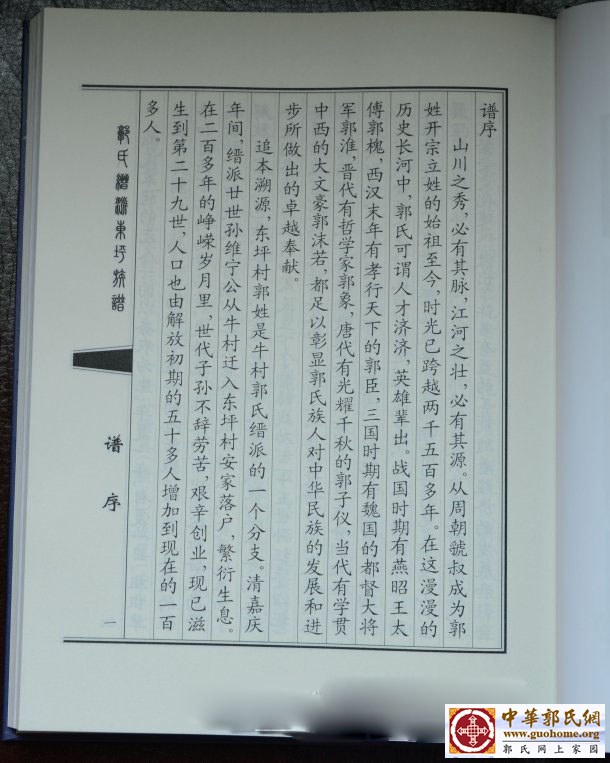 谱序
山川之秀，必有其脉，江河之壮，必有其源。从周朝虢叔成为郭
姓开宗立姓的始祖至今，时光已跨越两千五百多年。在这漫漫的
历史长河中，郭氏可谓人才济济，英雄辈出。战国时期有燕昭王太
傅郭槐，西汉末年有孝行天下的郭臣，三国时期有魏国的都督大将
军郭淮，晋代有哲学家郭象，唐代有光耀千秋的郭子仪，当代有学贯
中西的大文豪郭沫若，都足以彰显郭氏族人对中华民族的发展和进
步所做出的卓越奉献。
追本溯源，东坪村郭姓是牛村郭氏缙派的一个分支。清嘉庆
年间，缙派廿世孙维宁公从牛村迁入东坪村安家落户，繁衍生息。
在二百多年的峥嵘岁月里，世代子孙不辞劳苦，艰辛创业，现已滋
生到第二十九世，人口也由解放初期的五十多人增加到现在的一百
多人。
郭氏缙派东坪族谱
谱序
一
中華郭氏網
www.guohome.org
郭氏网上家园